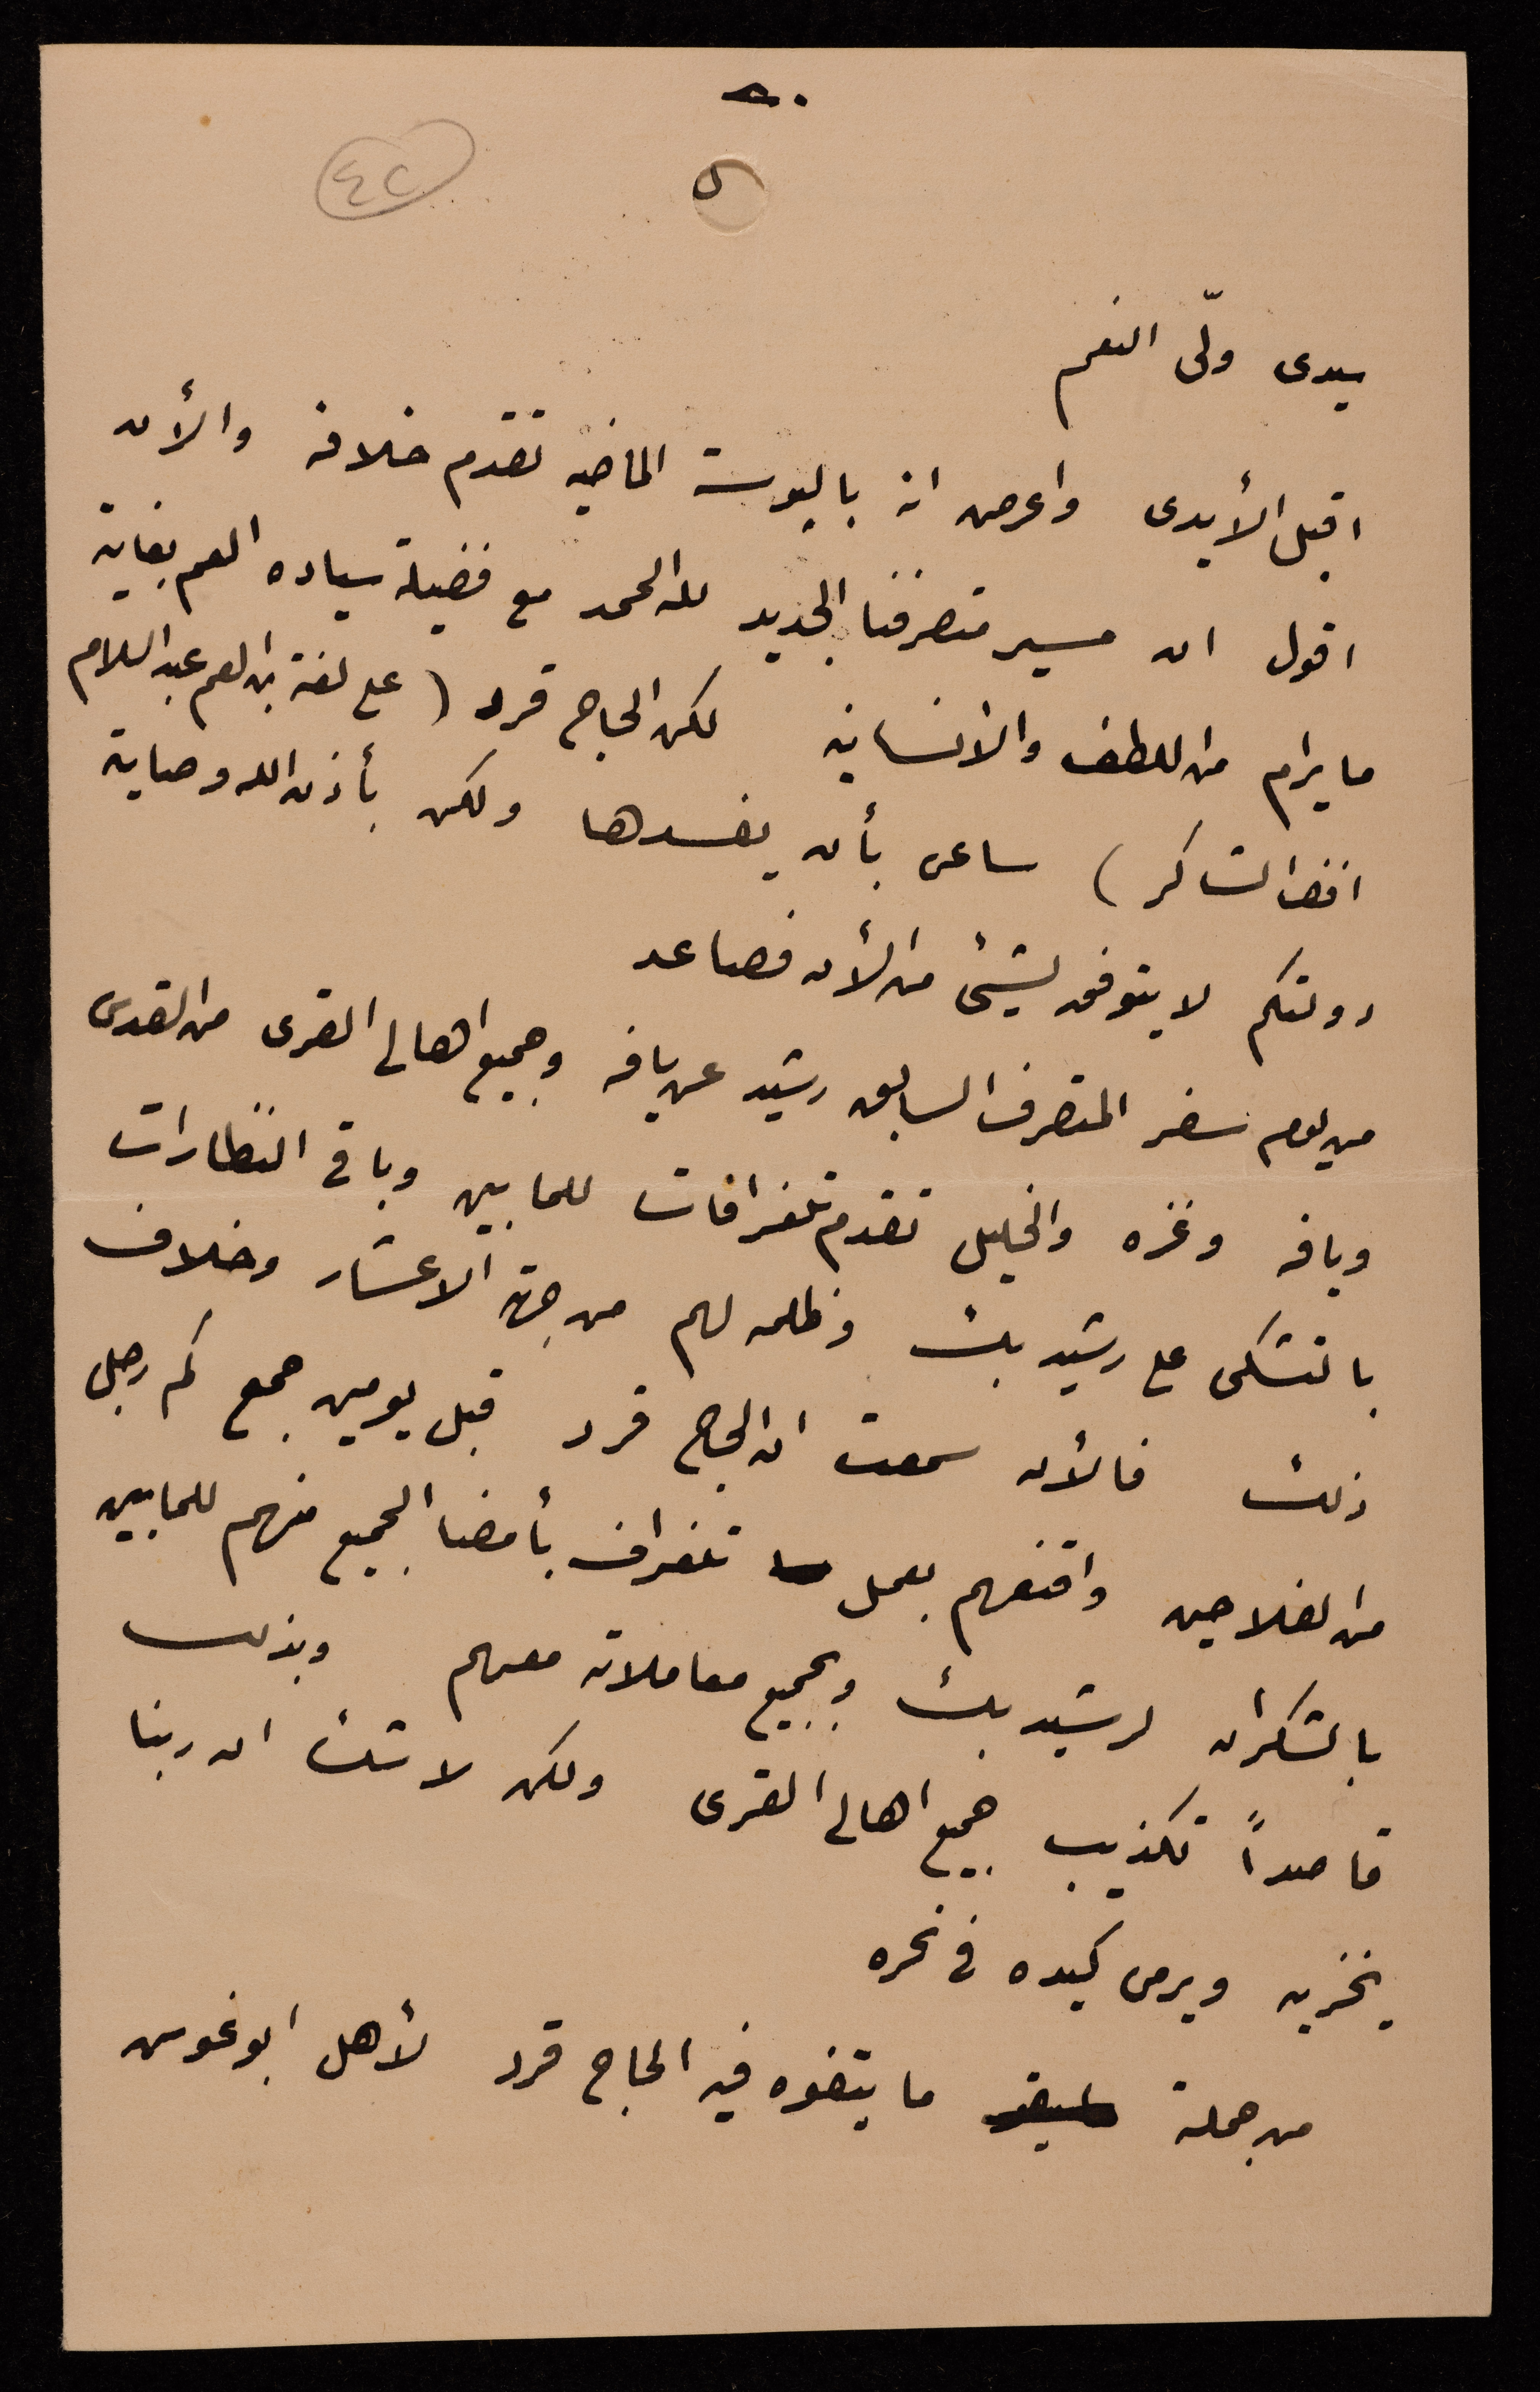 ٤٢
سيدى ولّى النعم
اقبل الأيدى واعرض انه بالبوسته الماضيه تقدم خلافه والأن
اقول ان مسير متصرفنا الجديد لله الحمد مع فضيلة سياده العم بغاية
ما يرام من اللطف والأنسانيه لكن الحاج قرد ( على لغة ابن العم عبد السلام
افندا لشاكر ) ساعى بأن يفسدها ولكن بأذن الله وصاية
دولتكم لا يتوفق لشيئ من الأن فصاعد
من يوم سفر المتصرف السابق رشيد عن يافه وجميع اهالى القرى من القدس
ويافه وغزه والخليل تقدم تلغرافات للمابين وباقى النظارات
بالتشكى على رشيد بك وظلمه لهم من جهة الاعشار وخلاف
ذلك فالأن سمعت ان الحاج قرد قبل يومين جمع كم رجل
من الفلاحين واقنعهم بعمل تلغراف بأمضا الجميع منهم للمابين
بالشكران لرشيد بك وبجميع معاملاته معهم وبذلك
قاصداً تكذيب جميع اهالى القرى ولكن لا شك ان ربنا
يخزيه ويرمى كيده فى نحره
من جملة ما يتفوه فيه الحاج قرد لأهل ابوغوش